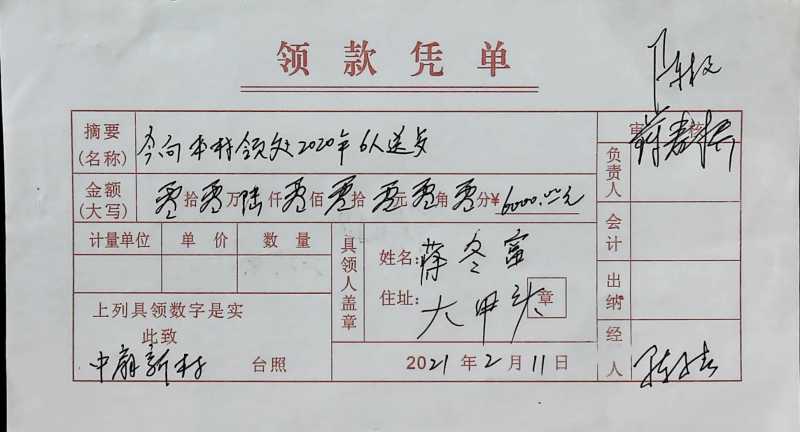 领款凭单
审 核
摘要
(名称)
今向本村领处2020年6人送岁
金额
(大写)
零拾零万陆仟零佰零拾零元零角零分¥6000.00元
计量单位 单价 数量
具领人盖章
姓名: 蒋冬富
住址: 大甲头
章
上列具领数字是实
此致
新村 台照
2021年2月11日
负责人
会计
出纳
经人